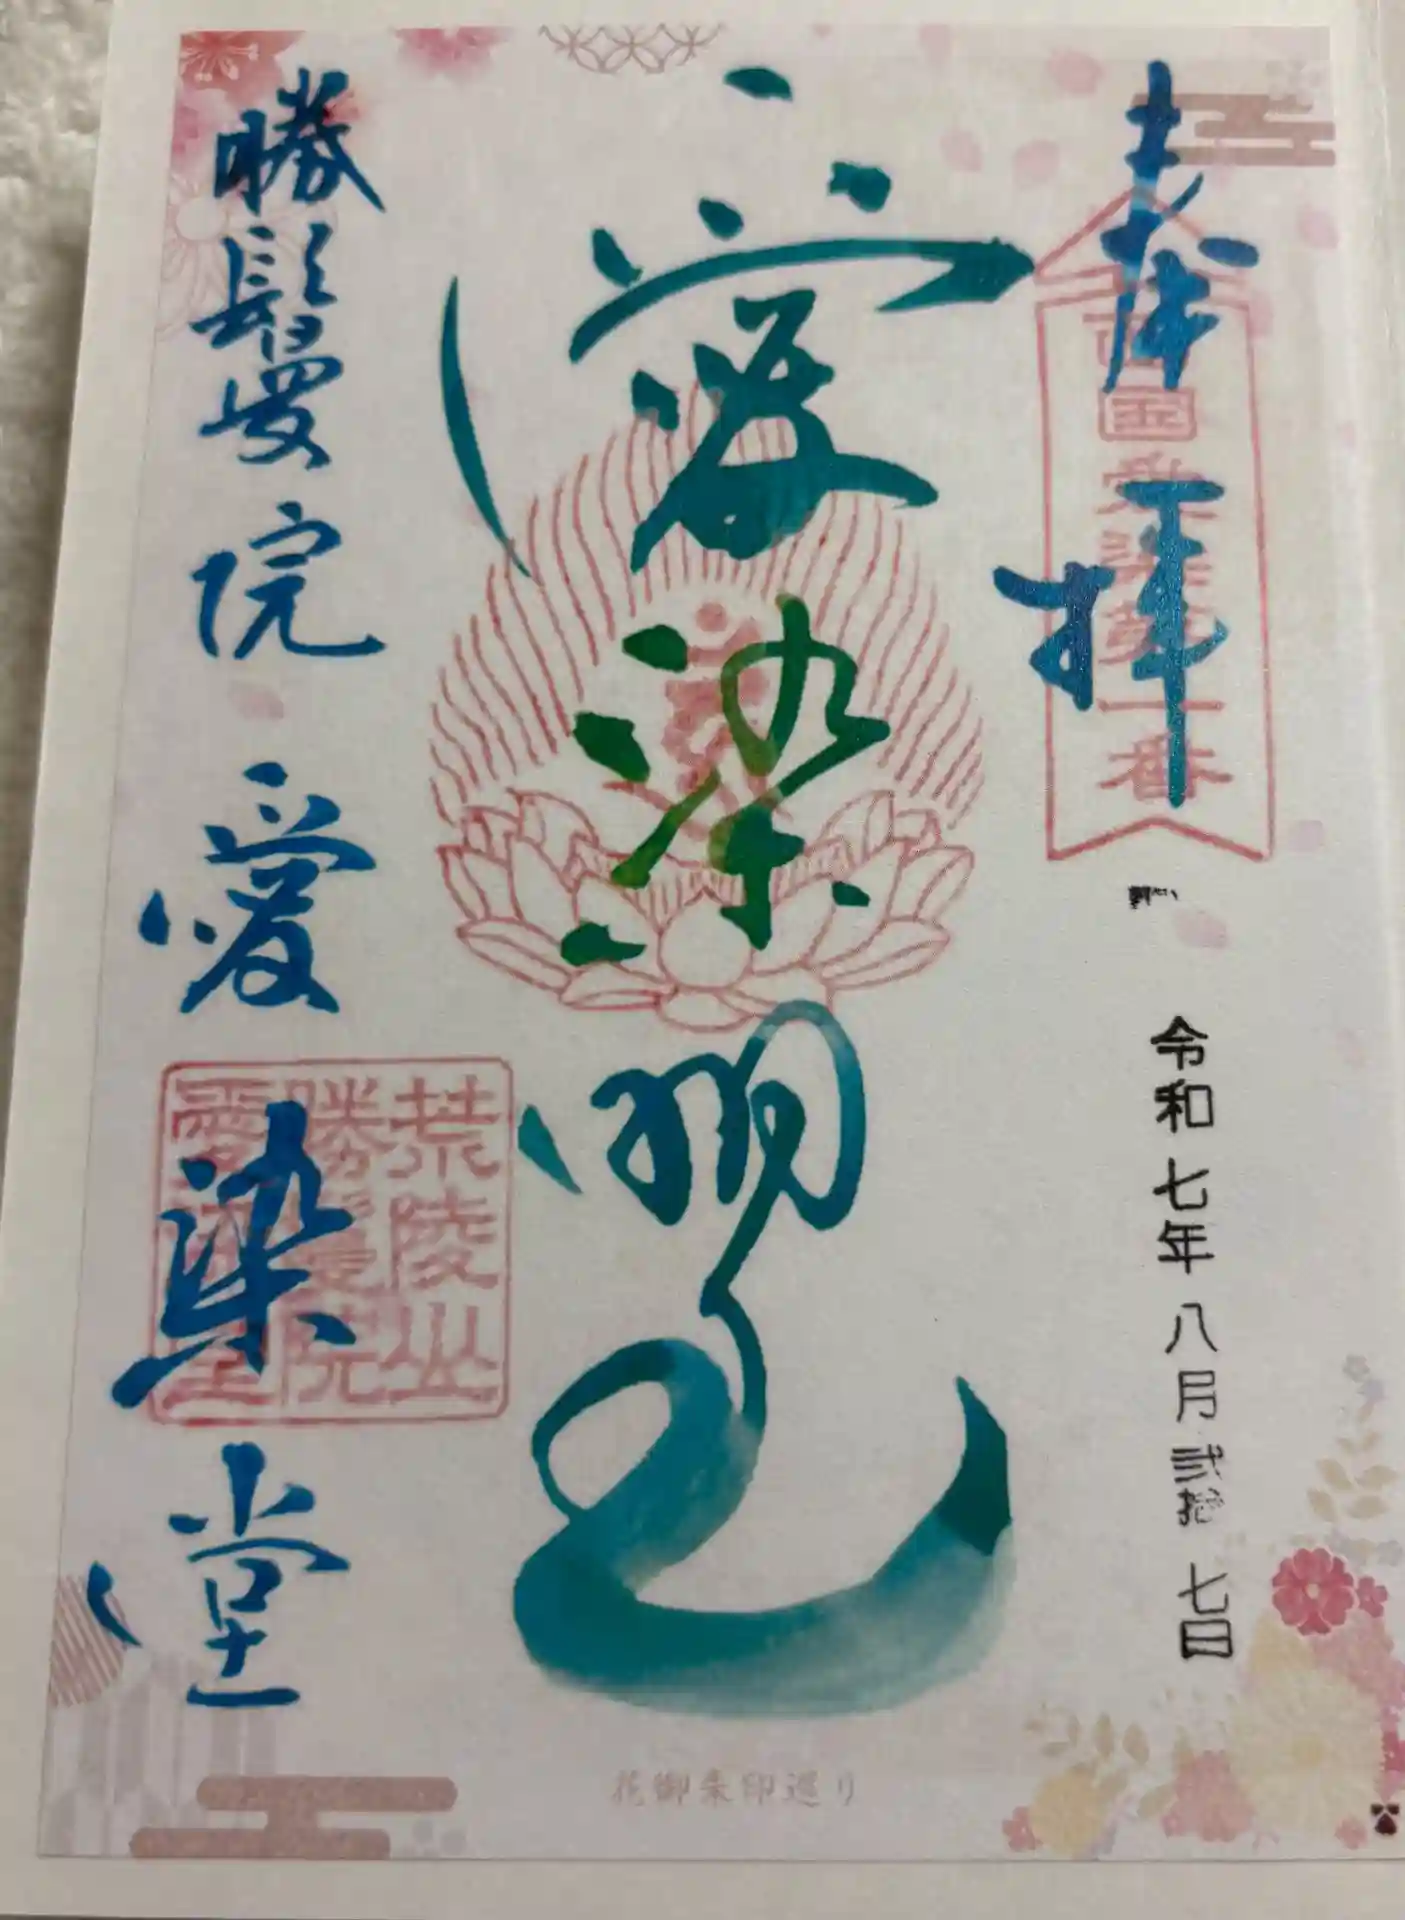 奉拝
西国愛染第一番
令和七年八月弐拾七日
愛染明王
荒陵山
勝鬘院
愛染堂
勝鬘院愛染堂
花御朱印巡り